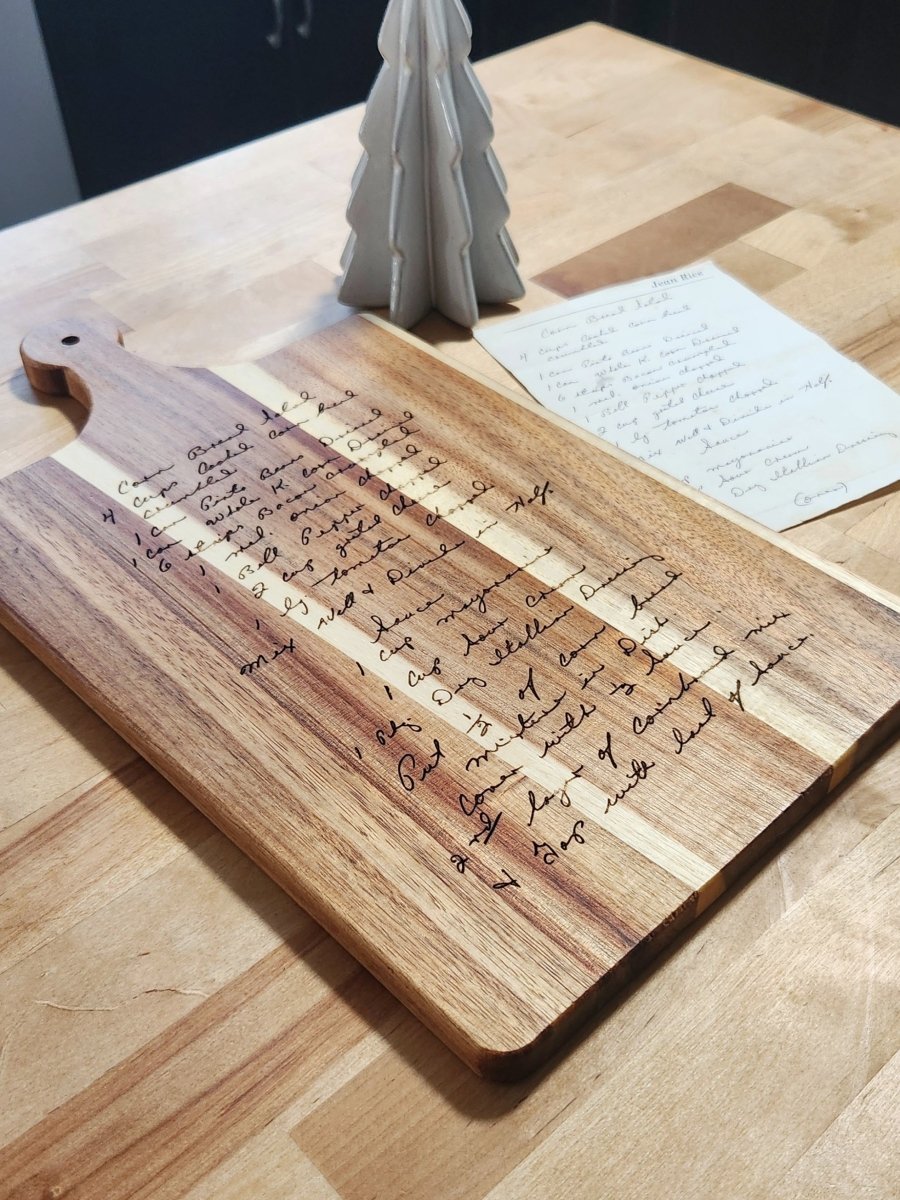 Corn Bread Salad
4 cups Cooked Corn bread
crumbled
1 can Pinto Beans Drained
1 can Whole K. Corn Drained
6 strips Bacon crumpled
1 med. onion chopped
1 Bell Pepper chopped
2 cup grated cheese
1 lg tomatoe chopped
Mix Well & Divide in Half.
Sauce
1 cup mayonnaise
1 cup sour cream
1 pkg Dry Itallian Dressing
Put 1/2 of corn bread
mixture in Dish
Cover with 1/2 sauce.
2nd layer of cornbread mix
& Top with last of sauce.
Jean Rice
Corn Bread Salad
4 cups Cooked Corn bread
crumbled
1 can Pinto Beans Drained
1 can Whole K. Corn Drained
6 strips Bacon crumpled
1 med. onion chopped
1 Bell Pepper chopped
2 cup grated cheese
lg tomatoe chopped
Well & Divide in Half.
Sauce
mayonnaise
sour cream
Dry Itallian Dressing
(over)